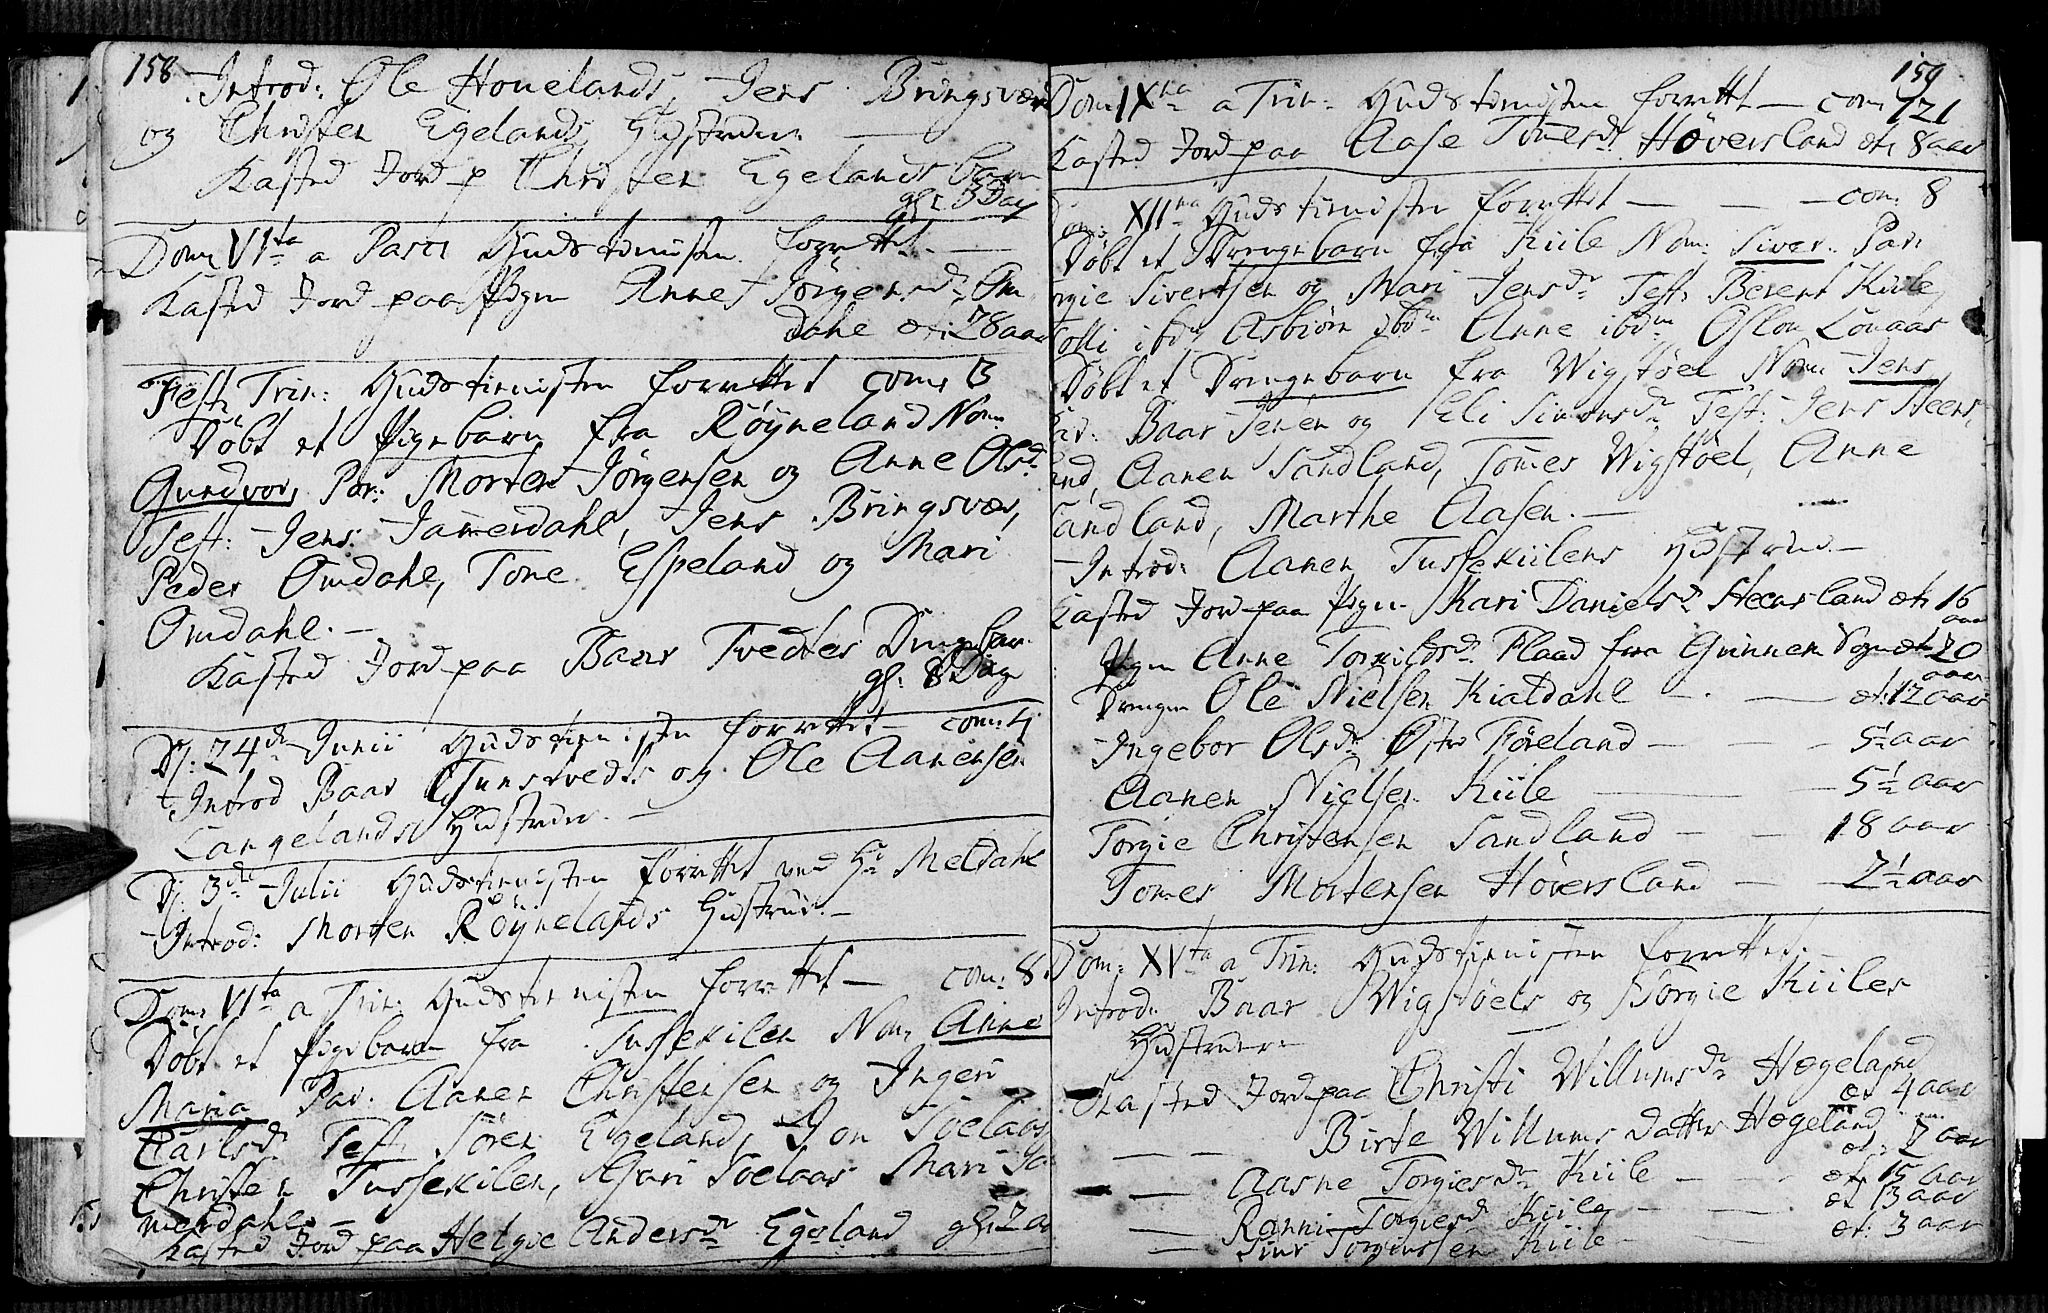 158
Introd: Ole Houelands, Jens Bringsvær
og Christen Egelands Hustruer. —
Kasted Jord p Christen Egelands barn
gl: 3 Dag
Dom: VIta a Pasca Gudstienisten forrettet. —
Kasted Jord paa Pigen Anne Jörgensdr Om
dahl æt: 28 aar
Fest: Trin: Gudstienisten forrettet com: 13
Döbt et Pigebarn fra Röyneland Nom:
Gundvor, Par: Morten Jörgensen og Anne Olsdr
Test: Jens Jamerdahl, Jens Bringsvær,
Peder Omdahl, Tone Espeland og Mari
Omdahl. —
Kasted Jord paa Baar Tvedtes Drengebar:
gl: 8 Dag
D: 24de Junii Gudstienisten forrettet — com: 4
Introd Baar Tvedts og Ole Aanensen
Langelands Hustruer. —
D: 3de Julii Gudstienisten forrettet ved Hr Meldahl
Introd: Morten Röynelands Hustrue. —
Dom: VIta a Trin: Gudstienisten forrettet — com: 8
Döbt et Pigebarn fra Tussekilen Nom: Anne
Maria Par. Aanen Christensen og Ingeri
Carlsdr Test: Sören Egeland, Jon Soelaas
Christen Tussekilen, Guri Soelaas Mari Ja
merdahl. —
Kasted Jord paa Helgie Andersdr Egeland gl: 2 aa
159
Dom: IXna a Trin: Gudstienisten forrettet — com: 121
Kasted Jord paa Aase Tomesdr Höversland æt: 8 aar
Dom: XIIna Gudstienisten forrettet — — — com: 8
Döbt et Drengebarn fra Kiile Nom: Siver. Par:
orgie Sivertsen og Mari Jensdr Test: Berent Kiile,
olli ibdm Asbiörn ibdm Anne ibdm Oslou Lonaas
Döbt et Drengebarn fra Wigstöel Nom: Jens,
Par: Baar Jensen og Eli Simonsdr Test: Jens Heers
land, Aanen Sandland, Tomes Wigstöel, Anne
Sandland, Marthe Aasen. —
Introd: Aanen Tussekiilens Hustrue. —
Kasted Jord paa Pigen Kari Danielsdr Heersland æt: 16
aar
Pigen Anne Torkildsdr Flaad fra Sogn æt: 20
aar
Drengen Ole Nielsen Kialdahl — — æt: 12 aar
Ingebor Olsdr Östre Föreland — — — 5½ aar
Aanen Nielsen Kiile — — 5½ aar
Torgie Christensen Sandland — — 18 aar
Tomes Mortensen Höversland — — 2½ aar
Dom: XVta a Trin: Gudstienisten forrettet. —
Introd: Baar Wigstöels og Torgie Kiiles
Hustruer —
Kasted Jord paa Christi Willumsdr Hægeland
æt 4 aar
— — Birte Willums datter Hægeland
æt: 2 aar
— Aasne Torgiesdr Kiile — — æt. 15 aar
— Ranni Torgiesdr Kiile — — æt 13 aar
— Siur Torgiussen Kiile — — æt: 3 aar